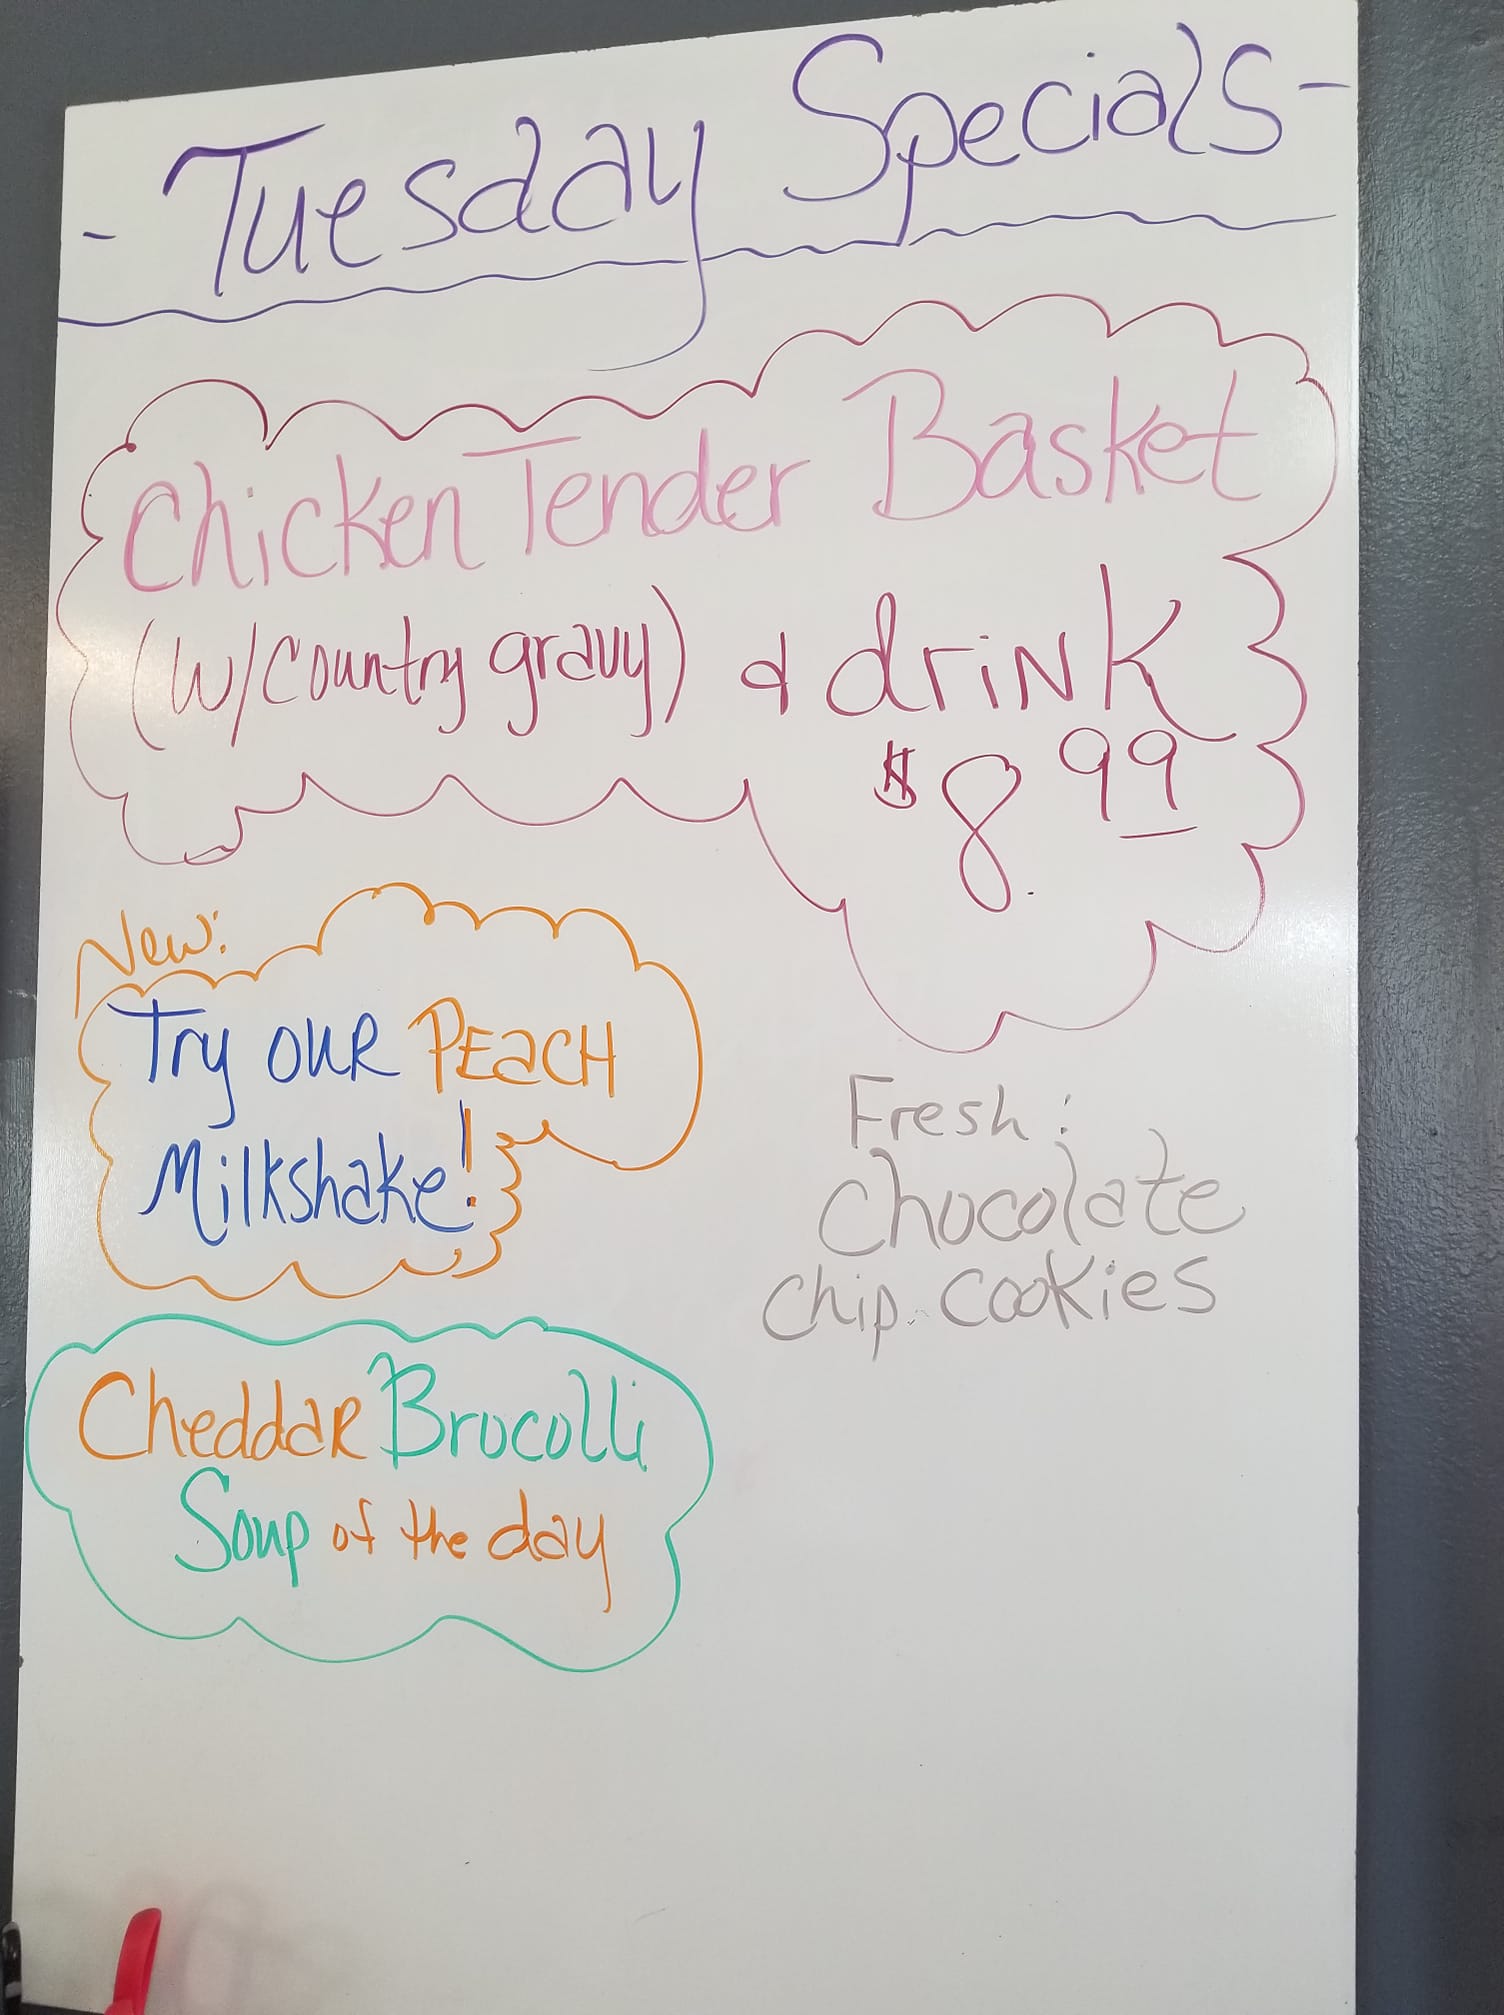 - Tuesday Specials -
Chicken Tender Basket
(w/country gravy) & drink
$8.99
New:
Try our PEACH
Milkshake!
Fresh:
Chocolate
Chip Cookies
Cheddar Brocolli
Soup of the day